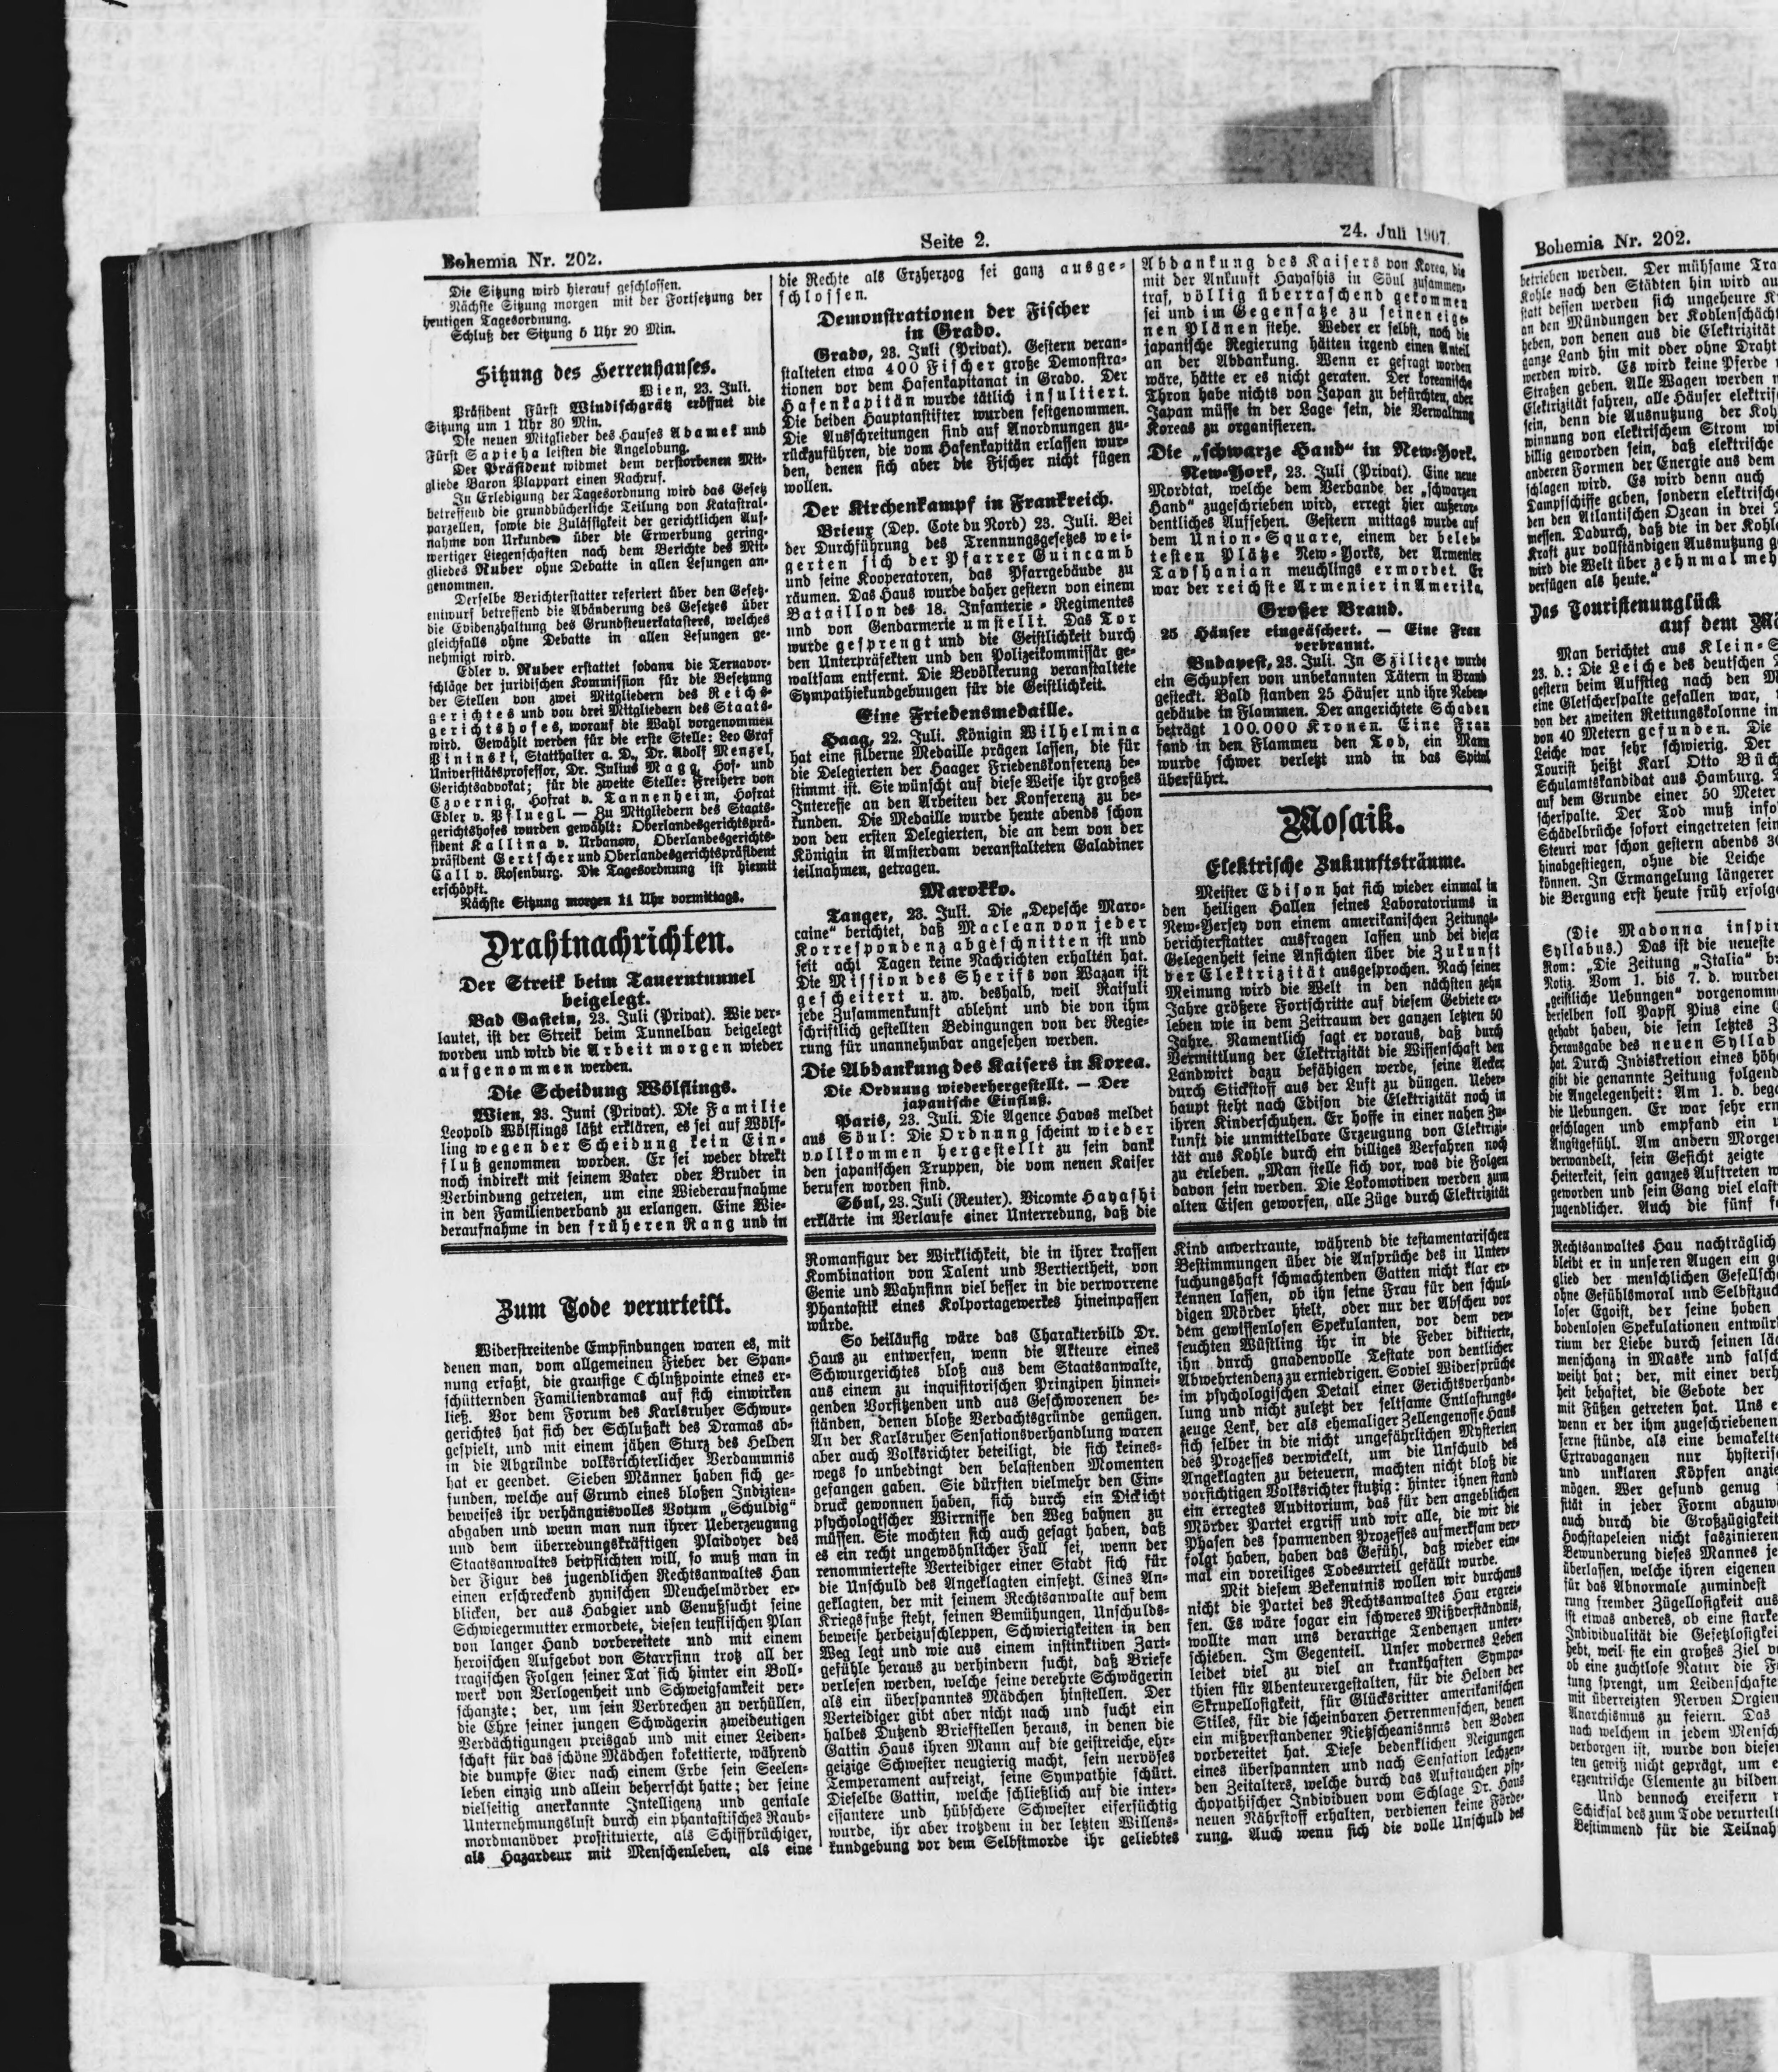 Bohemia Nr. 202.
Seite 2.
24. Juli 1907
Die Sitzung wird hierauf geschlossen.
Nächste Sitzung morgen mit der Fortsetzung der
heutigen Tagesordnung.
Schluß der Sitzung 5 Uhr 20 Min.
Sitzung des Herrenhauses.
Wien, 23. Juli.
Präsident Fürst Windischgrätz eröffnet die
Sitzung um 1 Uhr 30 Min.
Die neuen Mitglieder des Hauses Adamek und
Fürst Sapieha leisten die Angelobung.
Der Präsident widmet dem verstorbenen Mit-
gliede Baron Plappart einen Nachruf.
In Erledigung der Tagesordnung wird das Gesetz
betreffend die grundbücherliche Teilung von Katastral-
parzellen, sowie die Zulässigkeit der gerichtlichen Auf-
nahme von Urkunden über die Erwerbung gering-
wertiger Liegenschaften nach dem Berichte des Mit-
gliedes Ruber ohne Debatte in allen Lesungen an-
genommen.
Derselbe Berichterstatter referiert über den Gesetz-
entwurf betreffend die Abänderung des Gesetzes über
die Evidenzhaltung des Grundsteuerkatasters, welches
gleichfalls ohne Debatte in allen Lesungen ge-
nehmigt wird.
Edler v. Ruber erstattet sodann die Ternavor-
schläge der juridischen Kommission für die Besetzung
der Stellen von zwei Mitgliedern des Reichs-
gerichtes und von drei Mitgliedern des Staats-
gerichtshofes, worauf die Wahl vorgenommen
wird. Gewählt werden für die erste Stelle: Leo Graf
Pininski, Statthalter a. D., Dr. Adolf Menzel,
Universitätsprofessor, Dr. Julius Magg, Hof- und
Gerichtsadvokat; für die zweite Stelle: Freiherr von
Czoernig, Hofrat v. Tannenheim, Hofrat
Edler v. Pfluegl. — Zu Mitgliedern des Staats-
gerichtshofes wurden gewählt: Oberlandesgerichtsprä-
sident Kallina v. Urbanow, Oberlandesgerichts-
präsident Gertscher und Oberlandesgerichtspräsident
Call v. Rosenburg. Die Tagesordnung ist hiemit
erschöpft.
Nächste Sitzung morgen 11 Uhr vormittags.
Drahtnachrichten.
Der Streik beim Tauerntunnel
beigelegt.
Bad Gastein, 23. Juli (Privat). Wie ver-
lautet, ist der Streik beim Tunnelbau beigelegt
worden und wird die Arbeit morgen wieder
aufgenommen werden.
Die Scheidung Wölflings.
Wien, 23. Juni (Privat). Die Familie
Leopold Wölflings läßt erklären, es sei auf Wölf-
ling wegen der Scheidung kein Ein-
fluß genommen worden. Er sei weder direkt
noch indirekt mit seinem Vater oder Bruder in
Verbindung getreten, um eine Wiederaufnahme
in den Familienverband zu erlangen. Eine Wie-
deraufnahme in den früheren Rang und in
die Rechte als Erzherzog sei ganz ausge-
schlossen.
Demonstrationen der Fischer
in Grado.
Grado, 23. Juli (Privat). Gestern veran-
stalteten etwa 400 Fischer große Demonstra-
tionen vor dem Hafenkapitanat in Grado. Der
Hafenkapitän wurde tätlich insultiert.
Die beiden Hauptanstifter wurden festgenommen.
Die Ausschreitungen sind auf Anordnungen zu-
rückzuführen, die vom Hafenkapitän erlassen wur-
den, denen sich aber die Fischer nicht fügen
wollen.
Der Kirchenkampf in Frankreich.
Brieux (Dep. Cote du Nord) 23. Juli. Bei
der Durchführung des Trennungsgesetzes wei-
gerten sich der Pfarrer Guincamb
und seine Kooperatoren, das Pfarrgebäude zu
räumen. Das Haus wurde daher gestern von einem
Bataillon des 18. Infanterie-Regimentes
und von Gendarmerie umstellt. Das Tor
wurde gesprengt und die Geistlichkeit durch
den Unterpräfekten und den Polizeikommissär ge-
waltsam entfernt. Die Bevölkerung veranstaltete
Sympathiekundgebungen für die Geistlichkeit.
Eine Friedensmedaille.
Haag, 22. Juli. Königin Wilhelmina
hat eine silberne Medaille prägen lassen, die für
die Delegierten der Haager Friedenskonferenz be-
stimmt ist. Sie wünscht auf diese Weise ihr großes
Interesse an den Arbeiten der Konferenz zu be-
kunden. Die Medaille wurde heute abends schon
von den ersten Delegierten, die an dem von der
Königin in Amsterdam veranstalteten Galadiner
teilnahmen, getragen.
Marokko.
Tanger, 23. Juli. Die „Depesche Maro-
caine“ berichtet, daß Maclean von jeder
Korrespondenz abgeschnitten ist und
seit acht Tagen keine Nachrichten erhalten hat.
Die Mission des Sherifs von Wazan ist
gescheitert u. zw. deshalb, weil Raisuli
jede Zusammenkunft ablehnt und die von ihm
schriftlich gestellten Bedingungen von der Regie-
rung für unannehmbar angesehen werden.
Die Abdankung des Kaisers in Korea.
Die Ordnung wiederhergestellt. — Der
japanische Einfluß.
Paris, 23. Juli. Die Agence Havas meldet
aus Söul: Die Ordnung scheint wieder
vollkommen hergestellt zu sein dank
den japanischen Truppen, die vom neuen Kaiser
berufen worden sind.
Söul, 23. Juli (Reuter). Vicomte Hayashi
erklärte im Verlaufe einer Unterredung, daß die
Abdankung des Kaisers von Korea, die
mit der Ankunft Hayashis in Söul zusammen-
traf, völlig überraschend gekommen
sei und im Gegensatze zu seinen eige-
nen Plänen stehe. Weder er selbst, noch die
japanische Regierung hätten irgend einen Anteil
an der Abdankung. Wenn er gefragt worden
wäre, hätte er es nicht geraten. Der koreanische
Thron habe nichts von Japan zu befürchten, aber
Japan müsse in der Lage sein, die Verwaltung
Koreas zu organisieren.
Die „schwarze Hand“ in New-York.
New-York, 23. Juli (Privat). Eine neue
Mordtat, welche dem Verbande der „schwarzen
Hand“ zugeschrieben wird, erregt hier außeror-
dentliches Aufsehen. Gestern mittags wurde auf
dem Union-Square, einem der beleb-
testen Plätze New-Yorks, der Armenier
Tavshanian meuchlings ermordet. Er
war der reichste Armenier in Amerika.
Großer Brand.
25 Häuser eingeäschert. — Eine Frau
verbrannt.
Budapest, 23. Juli. In Szilicze wurde
ein Schupfen von unbekannten Tätern in Brand
gesteckt. Bald standen 25 Häuser und ihre Neben-
gebäude in Flammen. Der angerichtete Schaden
beträgt 100.000 Kronen. Eine Frau
fand in den Flammen den Tod, ein Mann
wurde schwer verletzt und in das Spital
überführt.
Mosaik.
Elektrische Zukunftsträume.
Meister Edison hat sich wieder einmal in
den heiligen Hallen seines Laboratoriums in
New-Yersey von einem amerikanischen Zeitungs-
berichterstatter ausfragen lassen und bei dieser
Gelegenheit seine Ansichten über die Zukunft
der Elektrizität ausgesprochen. Nach seiner
Meinung wird die Welt in den nächsten zehn
Jahre größere Fortschritte auf diesem Gebiete er-
leben wie in dem Zeitraum der ganzen letzten 50
Jahre. Namentlich sagt er voraus, daß durch
Vermittlung der Elektrizität die Wissenschaft den
Landwirt dazu befähigen werde, seine Aecker
durch Stickstoff aus der Luft zu düngen. Ueber-
haupt steht nach Edison die Elektrizität noch in
ihren Kinderschuhen. Er hoffe in einer nahen Zu-
kunft die unmittelbare Erzeugung von Elektrizi-
tät aus Kohle durch ein billiges Verfahren noch
zu erleben. „Man stelle sich vor, was die Folgen
davon sein werden. Die Lokomotiven werden zum
alten Eisen geworfen, alle Züge durch Elektrizität
Zum Tode verurteilt.
Widerstreitende Empfindungen waren es, mit
denen man, vom allgemeinen Fieber der Span-
nung erfaßt, die grausige Schlußpointe eines er-
schütternden Familiendramas auf sich einwirken
ließ. Vor dem Forum des Karlsruher Schwur-
gerichtes hat sich der Schlußakt des Dramas ab-
gespielt, und mit einem jähen Sturz des Helden
in die Abgründe volksrichterlicher Verdammnis
hat er geendet. Sieben Männer haben sich ge-
funden, welche auf Grund eines bloßen Indizien-
beweises ihr verhängnisvolles Votum „Schuldig“
abgaben und wenn man nun ihrer Ueberzeugung
und dem überredungskräftigen Plaidoyer des
Staatsanwaltes beipflichten will, so muß man in
der Figur des jugendlichen Rechtsanwaltes Hau
einen erschreckend zynischen Meuchelmörder er-
blicken, der aus Habgier und Genußsucht seine
Schwiegermutter ermordete, diesen teuflischen Plan
von langer Hand vorbereitete und mit einem
heroischen Aufgebot von Starrsinn trotz all der
tragischen Folgen seiner Tat sich hinter ein Boll-
werk von Verlogenheit und Schweigsamkeit ver-
schanzte; der, um sein Verbrechen zu verhüllen,
die Ehre seiner jungen Schwägerin zweideutigen
Verdächtigungen preisgab und mit einer Leiden-
schaft für das schöne Mädchen kokettierte, während
die dumpfe Gier nach einem Erbe sein Seelen-
leben einzig und allein beherrscht hatte; der seine
vielseitig anerkannte Intelligenz und geniale
Unternehmungslust durch ein phantastisches Raub-
mordmanöver prostituierte, als Schiffbrüchiger,
als Hazardeur mit Menschenleben, als eine
Romanfigur der Wirklichkeit, die in ihrer krassen
Kombination von Talent und Vertiertheit, von
Genie und Wahnsinn viel besser in die verworrene
Phantastik eines Kolportagewerkes hineinpassen
würde.
So beiläufig wäre das Charakterbild Dr.
Haus zu entwerfen, wenn die Akteure eines
Schwurgerichtes bloß aus dem Staatsanwalte,
aus einem zu inquisitorischen Prinzipen hinnei-
genden Vorsitzenden und aus Geschworenen be-
ständen, denen bloße Verdachtsgründe genügen.
An der Karlsruher Sensationsverhandlung waren
aber auch Volksrichter beteiligt, die sich keines-
wegs so unbedingt den belastenden Momenten
gefangen gaben. Sie dürften vielmehr den Ein-
druck gewonnen haben, sich durch ein Dickicht
psychologischer Wirrnisse den Weg bahnen zu
müssen. Sie mochten sich auch gesagt haben, daß
es ein recht ungewöhnlicher Fall sei, wenn der
renommierteste Verteidiger einer Stadt sich für
die Unschuld des Angeklagten einsetzt. Eines An-
geklagten, der mit seinem Rechtsanwalte auf dem
Kriegsfuße steht, seinen Bemühungen, Unschulds-
beweise herbeizuschleppen, Schwierigkeiten in den
Weg legt und wie aus einem instinktiven Zart-
gefühle heraus zu verhindern sucht, daß Briefe
verlesen werden, welche seine verehrte Schwägerin
als ein überspanntes Mädchen hinstellen. Der
Verteidiger gibt aber nicht nach und sucht ein
halbes Dutzend Briefstellen heraus, in denen die
Gattin Haus ihren Mann auf die geistreiche, ehr-
geizige Schwester neugierig macht, sein nervöses
Temperament aufreizt, seine Sympathie schürt.
Dieselbe Gattin, welche schließlich auf die inter-
essantere und hübschere Schwester eifersüchtig
wurde, ihr aber trotzdem in der letzten Willens-
kundgebung vor dem Selbstmorde ihr geliebtes
Kind anvertraute, während die testamentarischen
Bestimmungen über die Ansprüche des in Unter-
suchungshaft schmachtenden Gatten nicht klar er-
kennen lassen, ob ihn seine Frau für den schul-
digen Mörder hielt, oder nur der Abscheu vor
dem gewissenlosen Spekulanten, vor dem ver-
seuchten Wüstling ihr in die Feder diktierte,
ihn durch gnadenvolle Testate von deutlicher
Abwehrtendenz zu erniedrigen. Soviel Widersprüche
im psychologischen Detail einer Gerichtsverhand-
lung und nicht zuletzt der seltsame Entlastungs-
zeuge Lenk, der als ehemaliger Zellengenosse Haus
sich selber in die nicht ungefährlichen Mysterien
des Prozesses verwickelt, um die Unschuld des
Angeklagten zu beteuern, machten nicht bloß die
vorsichtigen Volksrichter stutzig: hinter ihnen stand
ein erregtes Auditorium, das für den angeblichen
Mörder Partei ergriff und wir alle, die wir die
Phasen des spannenden Prozesses aufmerksam ver-
folgt haben, haben das Gefühl, daß wieder ein-
mal ein voreiliges Todesurteil gefällt wurde.
Mit diesem Bekenntnis wollen wir durchaus
nicht die Partei des Rechtsanwaltes Hau ergrei-
fen. Es wäre sogar ein schweres Mißverständnis,
wollte man uns derartige Tendenzen unter-
schieben. Im Gegenteil. Unser modernes Leben
leidet viel zu viel an krankhaften Sympa-
thien für Abenteurergestalten, für die Helden der
Skrupellosigkeit, für Glücksritter amerikanischen
Stiles, für die scheinbaren Herrenmenschen, denen
ein mißverstandener Nietzscheanismus den Boden
vorbereitet hat. Diese bedenklichen Neigungen
eines überspannten und nach Sensation lechzen-
den Zeitalters, welche durch das Auftauchen psy-
chopathischer Individuen vom Schlage Dr. Haus
neuen Nährstoff erhalten, verdienen keine Förde-
rung. Auch wenn sich die volle Unschuld des
Bohemia Nr. 202.
betrieben werden. Der mühsame Tra
Kohle nach den Städten hin wird au
statt dessen werden sich ungeheure K
an den Mündungen der Kohlenschächt
heben, von denen aus die Elektrizität
ganze Land hin mit oder ohne Draht
werden wird. Es wird keine Pferde
Straßen geben. Alle Wagen werden
Elektrizität fahren, alle Häuser elektris
sein, denn die Ausnutzung der Koh
winnung von elektrischem Strom wi
billig geworden sein, daß elektrische
anderen Formen der Energie aus dem
schlagen wird. Es wird denn auch
Dampfschiffe geben, sondern elektrisch
den den Atlantischen Ozean in drei
messen. Dadurch, daß die in der Kohl
Kraft zur vollständigen Ausnutzung g
wird die Welt über zehnmal meh
verfügen als heute.“
Das Touristenunglück
auf dem Mö
Man berichtet aus Klein-S
23. d.: Die Leiche des deutschen
gestern beim Aufstieg nach den M
eine Gletscherspalte gefallen war,
von der zweiten Rettungskolonne in
von 40 Metern gefunden. Die
Leiche war sehr schwierig. Der
Tourist heißt Karl Otto Büch
Schulamtskandidat aus Hamburg.
auf dem Grunde einer 50 Meter
scherspalte. Der Tod muß info
Schädelbrüche sofort eingetreten sein
Steuri war schon gestern abends 30
hinabgestiegen, ohne die Leiche
können. In Ermangelung längerer
die Bergung erst heute früh erfolg
(Die Madonna inspir
Syllabus.) Das ist die neueste
Rom: „Die Zeitung „Italia“ br
Notiz. Vom 1. bis 7. d. wurden
„geistliche Uebungen“ vorgenomm
derselben soll Papst Pius eine
gehabt haben, die sein letztes Z
Herausgabe des neuen Syllab
hat. Durch Indiskretion eines höh
gibt die genannte Zeitung folgend
die Angelegenheit: Am 1. d. bega
die Uebungen. Er war sehr ern
geschlagen und empfand ein
Angstgefühl. Am andern Morge
verwandelt, sein Gesicht zeigte
Heiterkeit, sein ganzes Auftreten w
geworden und sein Gang viel elast
jugendlicher. Auch die fünf
Rechtsanwaltes Hau nachträglich
bleibt er in unseren Augen ein g
glied der menschlichen Gesellsch
ohne Gefühlsmoral und Selbstzuch
loser Egoist, der seine hohen
bodenlosen Spekulationen entwür
rium der Liebe durch seinen läc
menschanz in Maske und falsch
weiht hat; der, mit einer verh
heit behaftet, die Gebote der
mit Füßen getreten hat. Uns e
wenn er der ihm zugeschriebenen
ferne stünde, als eine bemakelte
Extravaganzen nur hysteris
und unklaren Köpfen anzie
mögen. Wer gesund genug
sität in jeder Form abzuw
auch durch die Großzügigkeit
Hochstapeleien nicht faszinieren
Bewunderung dieses Mannes je
überlassen, welche ihren eigenen
für das Abnormale zumindest
rung fremder Zügellosigkeit aus
ist etwas anderes, ob eine starke
Individualität die Gesetzlosigkei
hebt, weil sie ein großes Ziel v
ob eine zuchtlose Natur die F
tung sprengt, um Leidenschafte
mit überreizten Nerven Orgien
Anarchismus zu feiern. Das
nach welchem in jedem Mensch
verborgen ist, wurde von diese
ten gewiß nicht geprägt, um e
exzentrische Elemente zu bilden
Und dennoch ereifern
Schicksal des zum Tode verurteilt
Bestimmend für die Teilnah